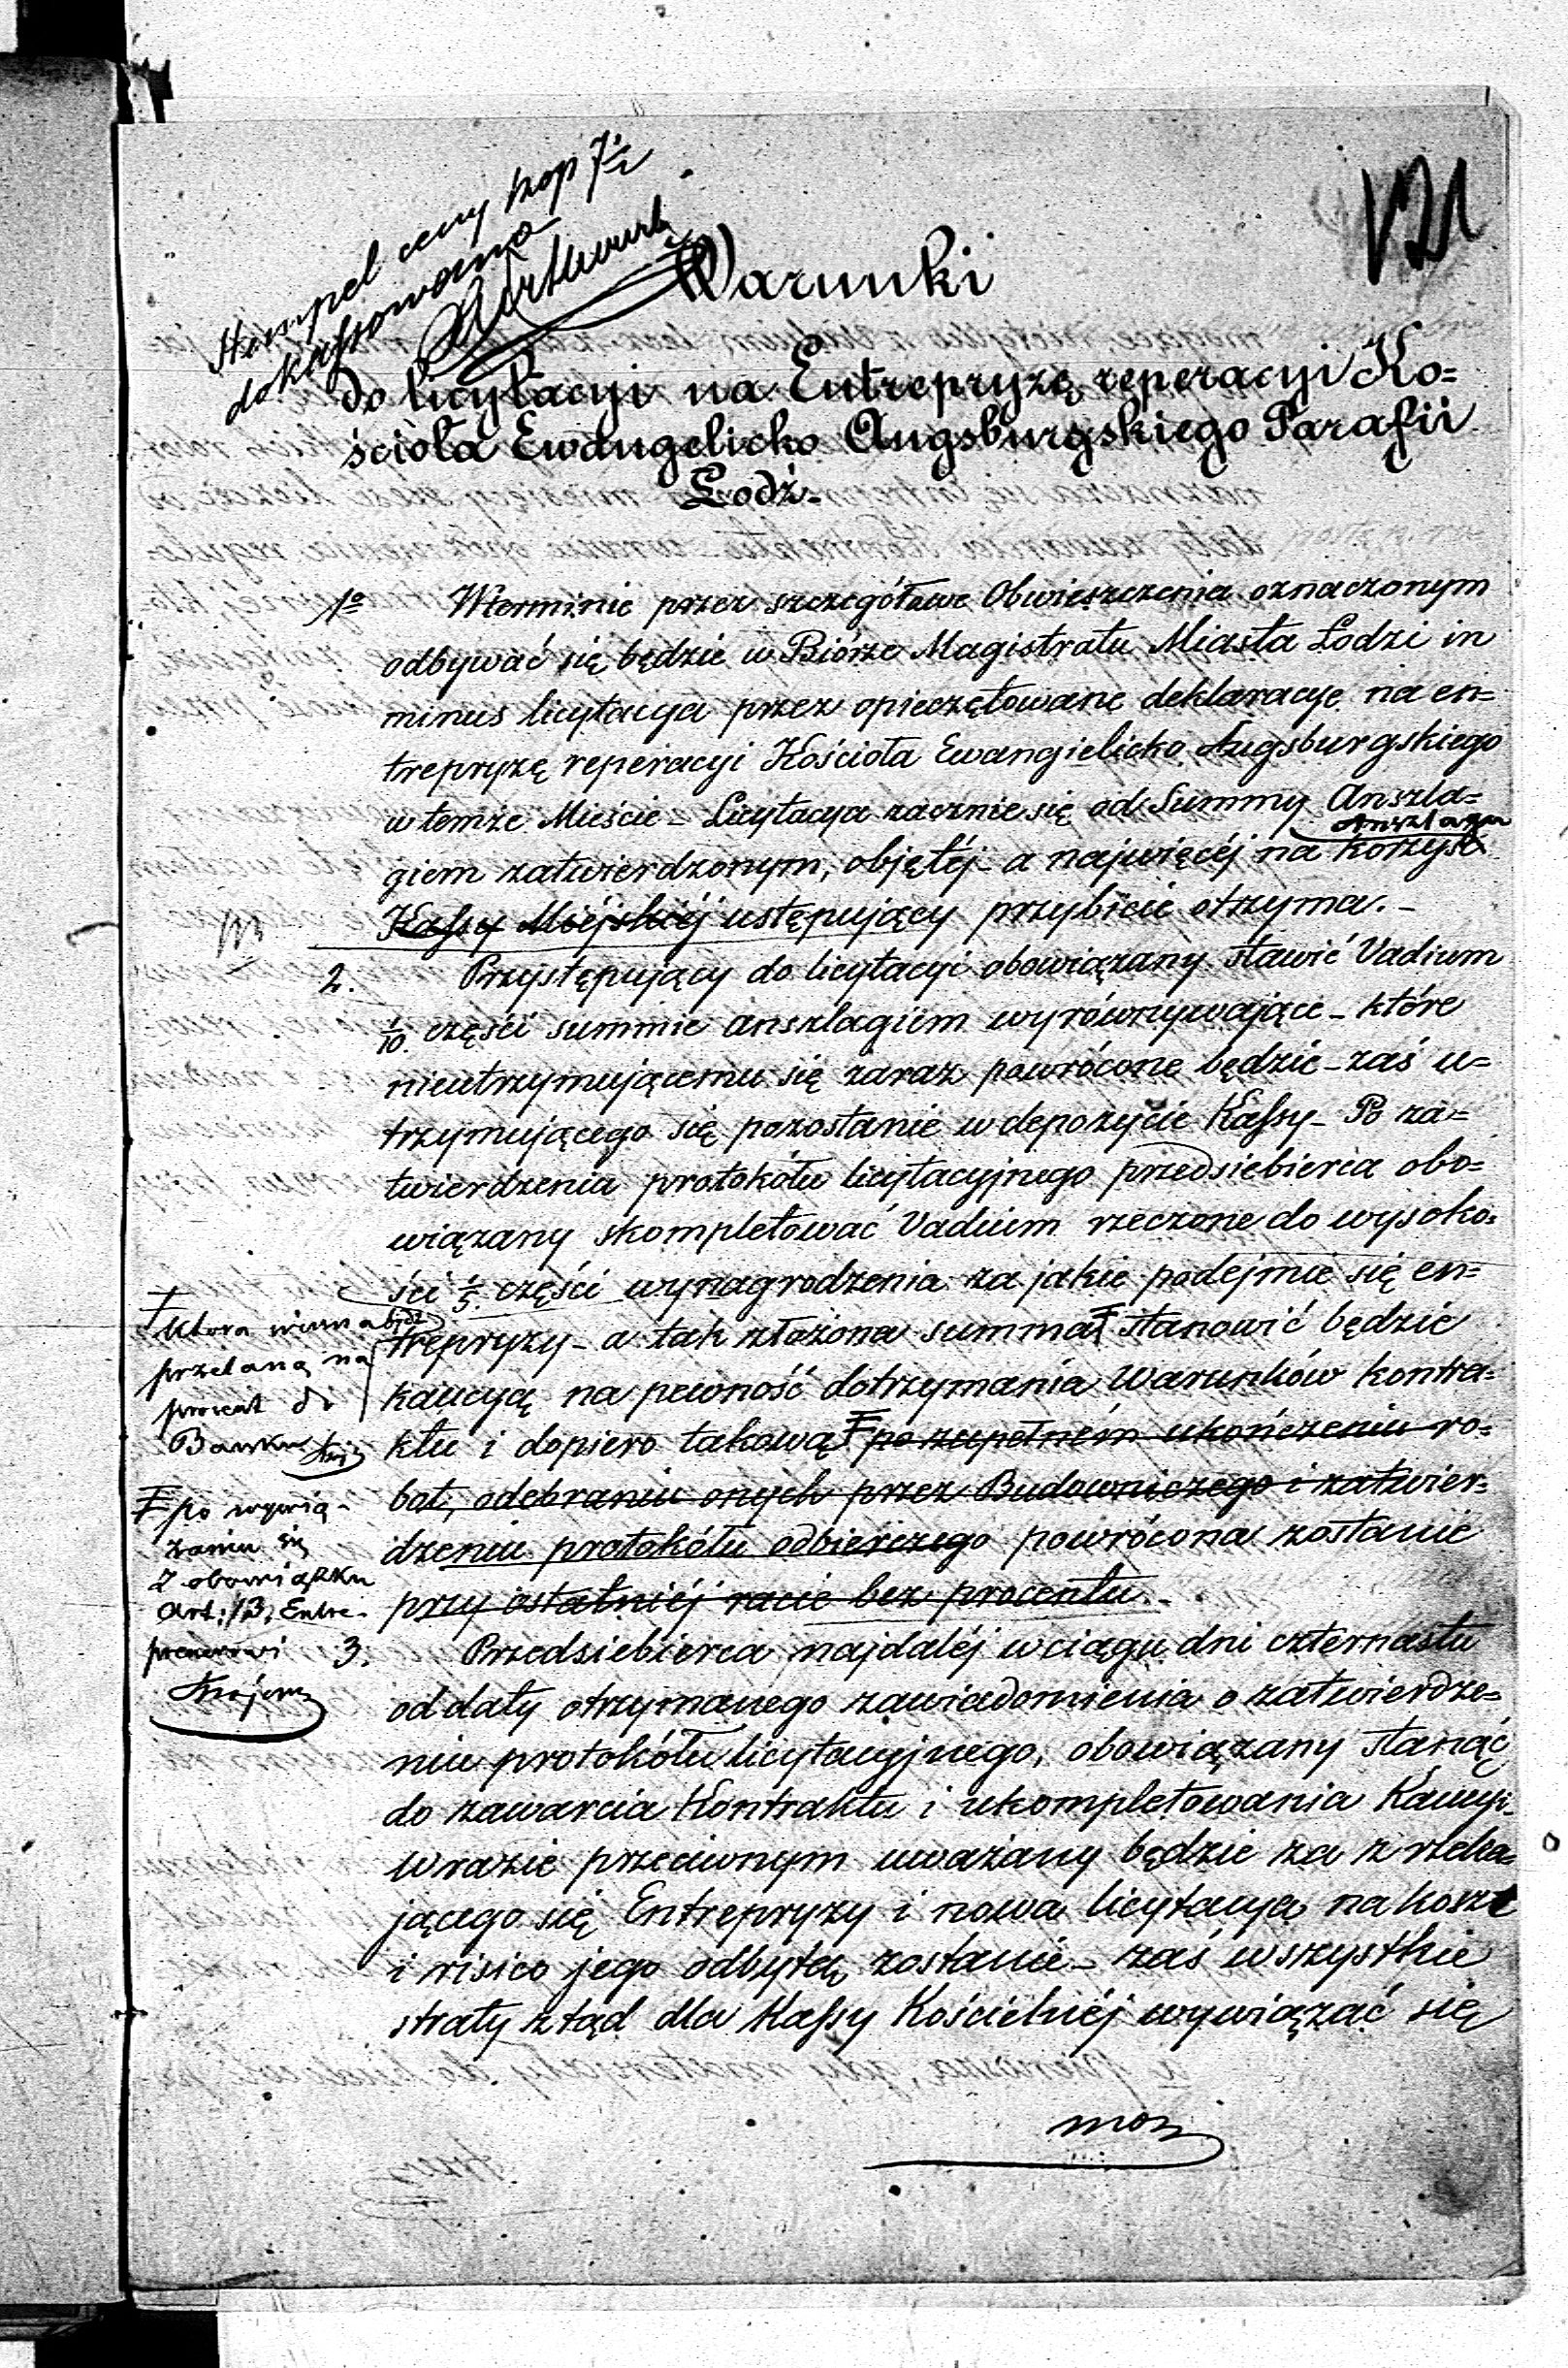 Stempel ceny kop 7½
dokassowano
121
Warunki
do licytacyi na Entrepryzę reperacyi Ko=
ścioła Ewangelicko Augsburgskiego Parafii
Łodź.
1o W terminie przez szczegółowe Obwieszczenia oznaczonym
odbywać się będzie w Biórze Magistratu Miasta Łodzi in
minus licytacya przez opieczętowane deklaracye na en=
trepryzę reperacyi Kościoła Ewangielicko Augsburgskiego
w temże Mieście _ Licytacya zacznie się od Summy Anszla=
Anszlagu
giem zatwierdzonym, objętéj _ a najwięcéj na korzyść
Kassy Miéjskiéj ustępujący przybicie otrzyma. _
2. Przystępujący do licytacyi obowiązany stawić Vadium
1/10 części summie anszlagiem wyrównywające _ które
nieutrzymującemu się zaraz powrócone będzie _ zaś u=
trzymującego się pozostanie w depozycie Kassy _ Po za=
twierdzeniu protokółu licytacyjnego przedsiebierca obo=
wiązany skompletować Vadium rzeczone do wysoko=
ści 1/5 części wynagrodzenia za jakie podejmie się en=
trepryzy _ a tak złożona summa ‡ stanowić będzie
kaucyą na pewność dotrzymania Warunków kontra=
ktu i dopiero takową ‡ po zupełném ukończeniu ro=
bat, odebraniu onych przez Budowniczego i zatwier=
dzeniu protokółu odbierczego powrócona zostanie
przy ostatniéj racie bez procentu. _
‡ ktora winna bydź
przelaną na
procent do
Banku
‡ po wywią=
zaniu się
z obowiązku
Art: 13, Entre=
prenerowi
3. Przedsiebierca najdaléj w ciągu dni czternastu
od daty otrzymanego zawiadomienia o zatwierdze=
niu protokółu licytacyjnego, obowiązany stanąć
do zawarcia Kontraktu i ukompletowania Kaucyi _
w razie przeciwnym uważany będzie za zrzeka=
jącego się Entrepryzy i nowa licytacya na koszt
i risico jego odbytą zostanie _ zaś wszystkie
straty ztąd dla Kassy Kościelnéj wywiązać się
mog